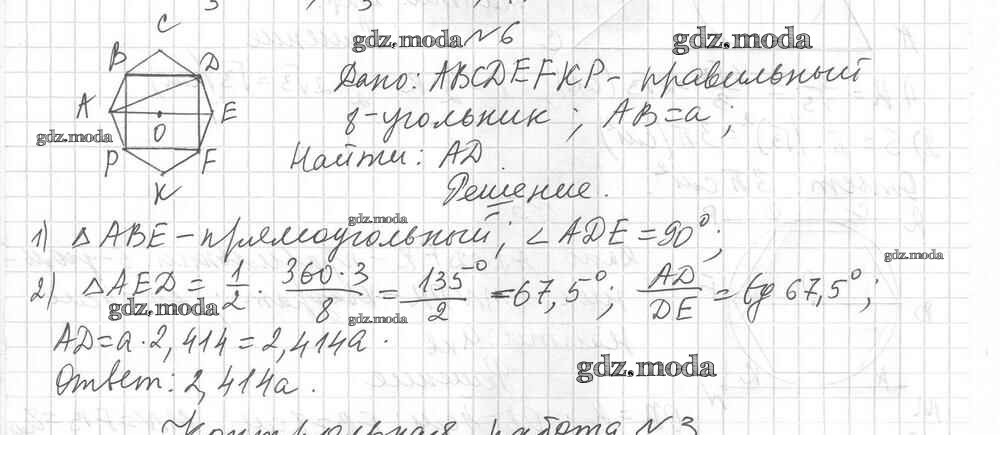 C
B
D
gdz.moda
№6
gdz.moda
Дано: ABCDEFKP - правильный
A
E
O
8-угольник ; AB=a ;
gdz.moda
P
F
Найти: AD
K
Решение.
gdz.moda
1) △ABE - прямоугольный; ∠ADE = 90°;
gdz.moda
2) △AED = 1/2 · 360·3/8 = 135°/2 = 67,5°; AD/DE = tg 67,5°;
gdz.moda
gdz.moda
AD = a · 2,414 = 2,414a.
gdz.moda
Ответ: 2,414a.
Контрольная работа №3